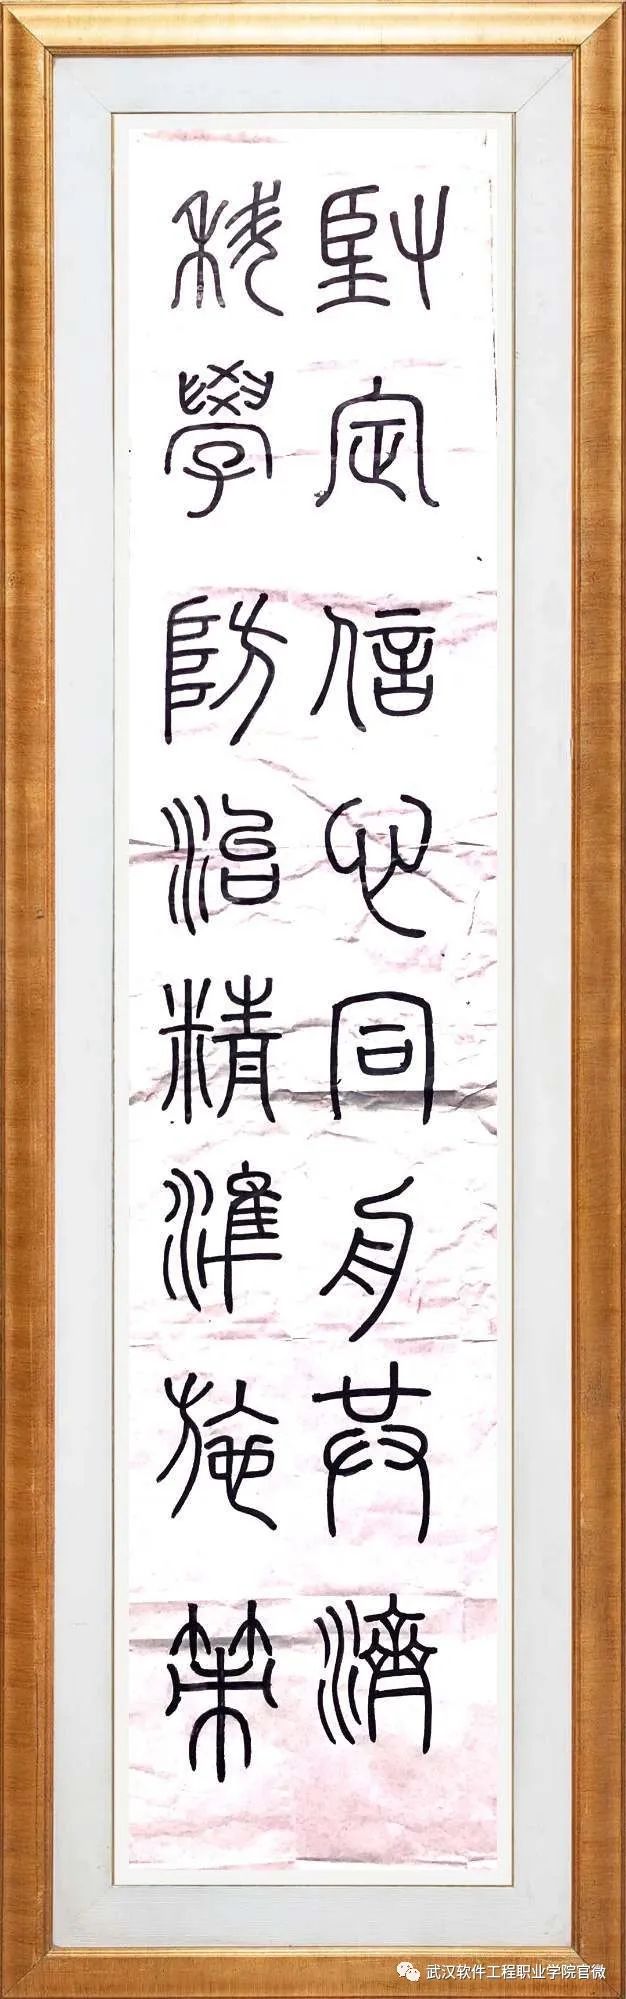 堅定信心同舟共濟
科學防治精準施策
武汉软件工程职业学院官微